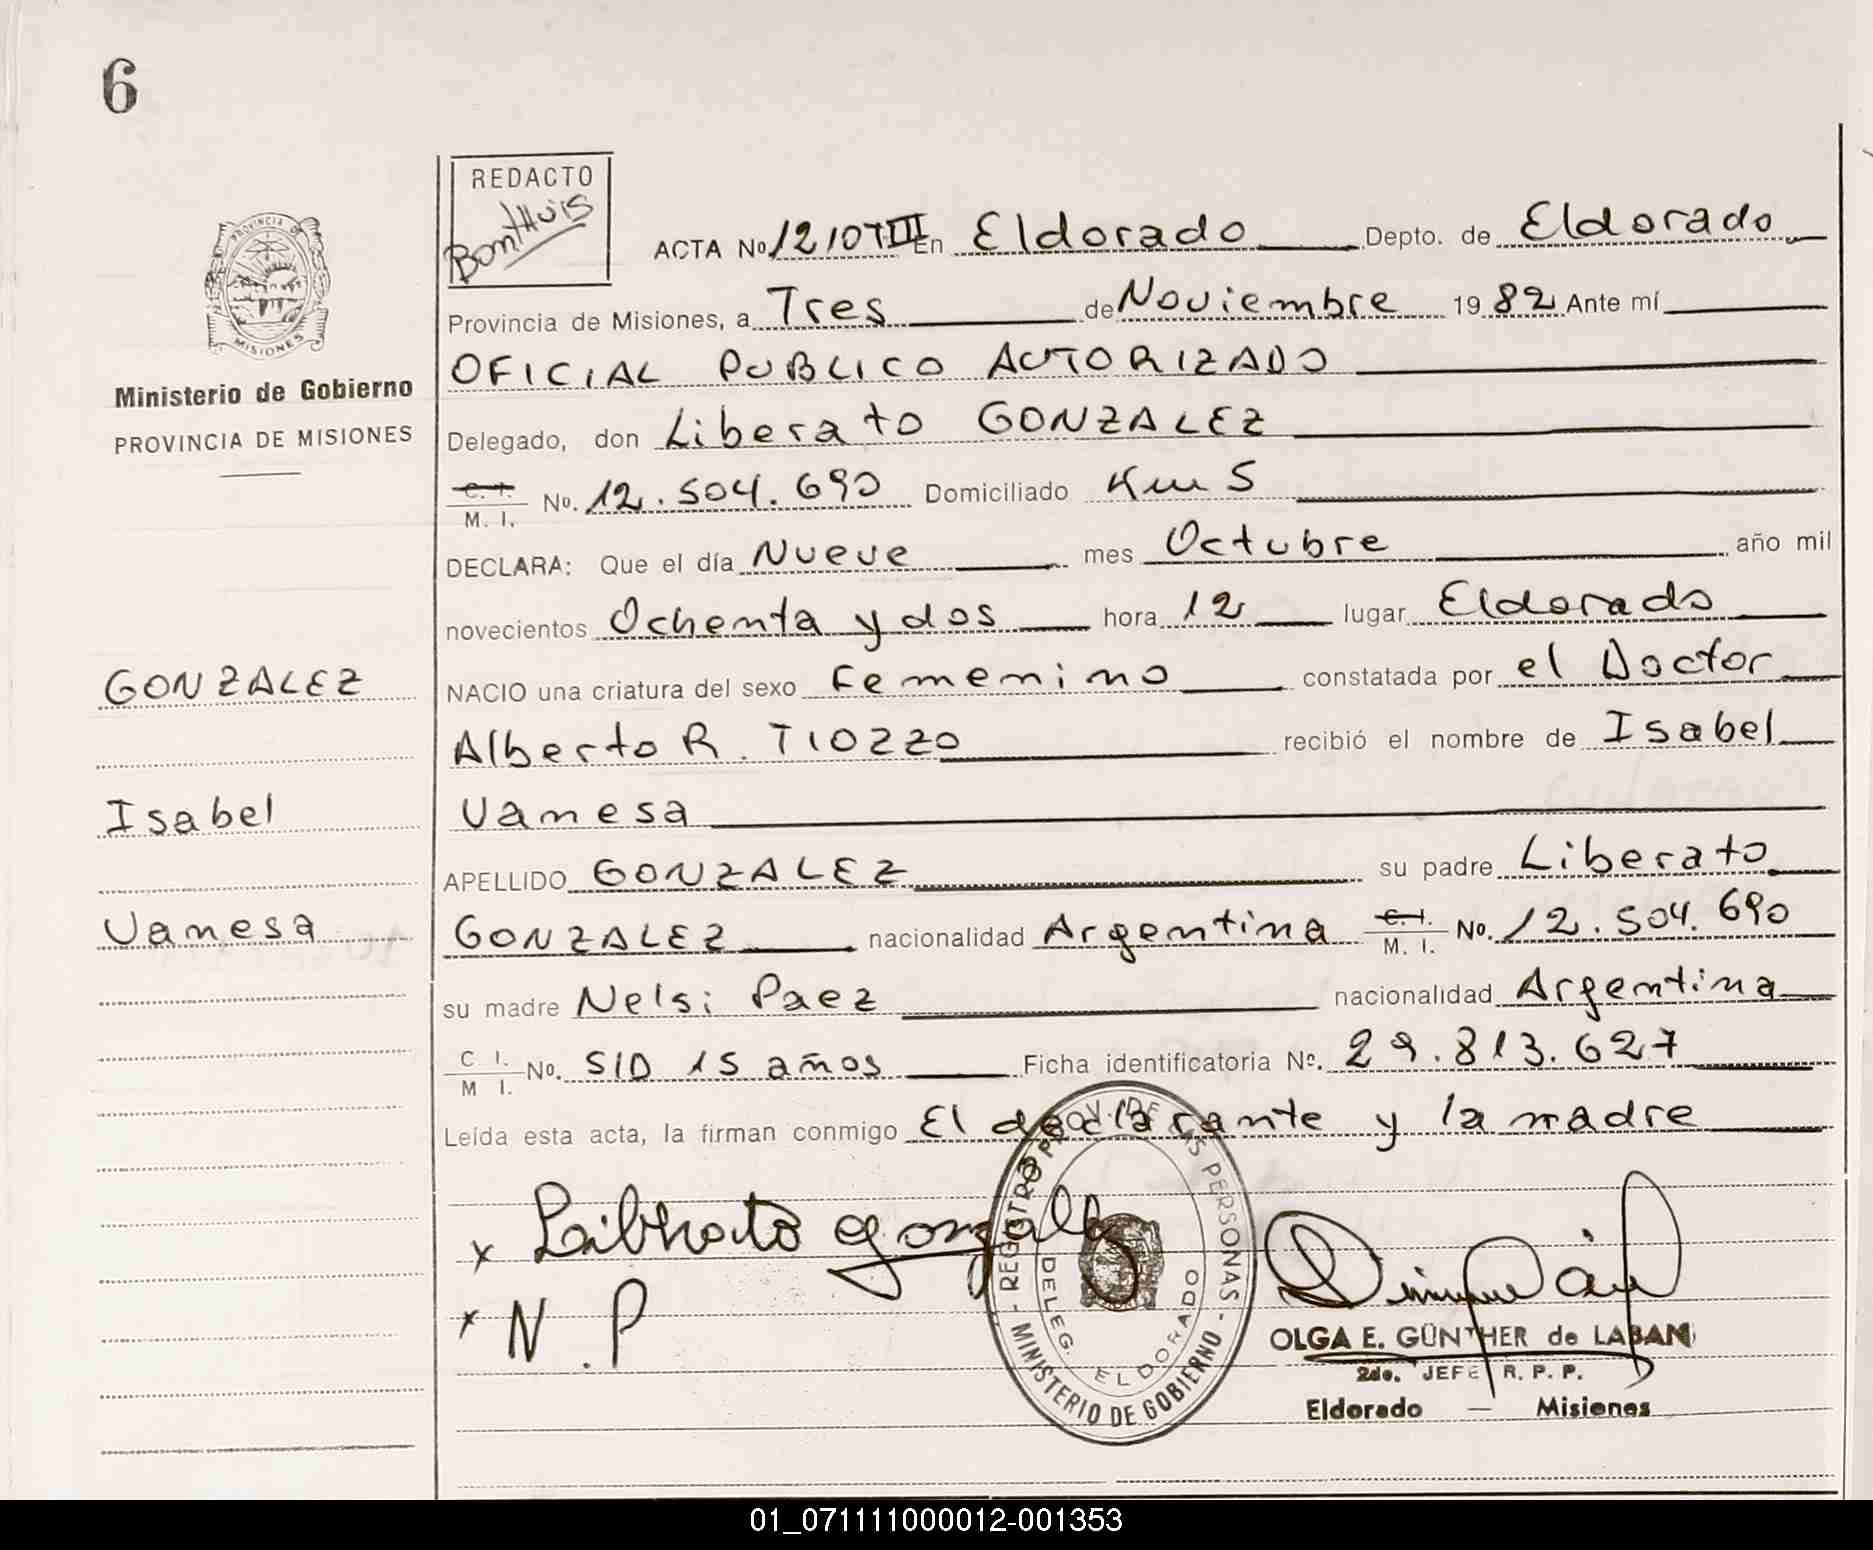 6
REDACTO
Bonthuis
PROVINCIA DE
MISIONES
Ministerio de Gobierno
PROVINCIA DE MISIONES
GONZALEZ
Isabel
Vanesa
ACTA No 1210TIII En Eldorado Depto. de Eldorado
Provincia de Misiones, a Tres de Noviembre 19 82 Ante mí
OFICIAL PUBLICO AUTORIZADO
Delegado, don Liberato GONZALEZ
C. I. M. I. No. 12.504.690 Domiciliado Km 5
DECLARA: Que el día Nueve mes Octubre año mil
novecientos Ochenta y dos hora 12 lugar Eldorado
NACIO una criatura del sexo Femenino constatada por el Doctor
Alberto R. TIOZZO recibió el nombre de Isabel
Vanesa
APELLIDO GONZALEZ su padre Liberato
GONZALEZ nacionalidad Argentina C. I. M. I. No. 12.504.690
su madre Nelsi Paez nacionalidad Argentina
C I. M I. No. S/D 15 años Ficha identificatoria Nº. 29.813.627
Leída esta acta, la firman conmigo El declarante y la madre
x Librato gonzalez
x N.P
REGISTRO PROV. DE LAS PERSONAS
MINISTERIO DE GOBIERNO
DELEG. ELDORADO
OLGA E. GÜNTHER de LABAN
2do. JEFE R. P. P.
Eldorado — Misiones
01_071111000012-001353